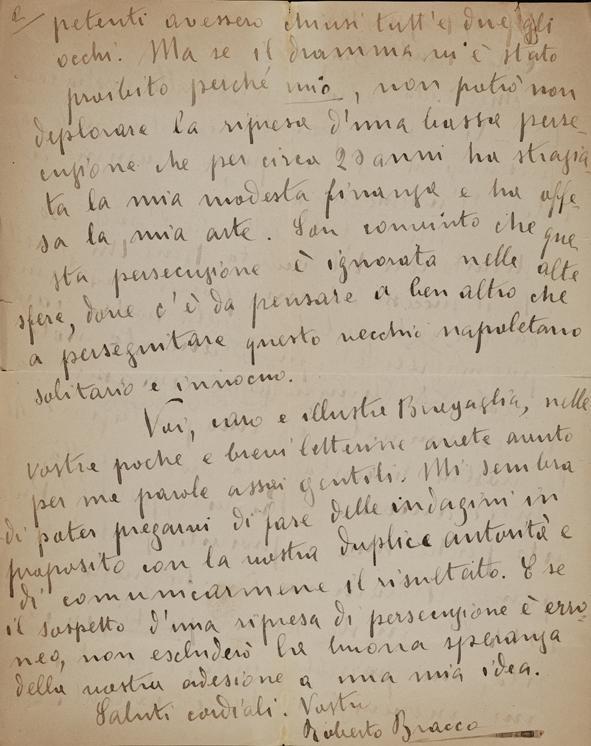 2/
petenti avessero chiusi tutt'e due gli
occhi. Ma se il dramma m'è stato
proibito perché mio, non potrò non
deplorare la ripresa d'una bassa perse-
cuzione che per circa 20 anni ha strazia-
ta la mia modesta finanza e ha offe-
sa la mia arte. Son convinto che que-
sta persecuzione è ignorata nelle alte
sfere, dove c'è da pensare a ben altro che
a perseguitare questo vecchio napoletano
solitario e innocuo.
Voi, caro e illustre Bragaglia, nelle
vostre poche e brevi letterine avete avuto
per me parole assai gentili. Mi sembra
di poter pregarvi di fare delle indagini in
proposito con la vostra duplice autorità e
di comunicarmene il risultato. E se
il sospetto d'una ripresa di persecuzione è erro-
neo, non escluderò la buona speranza
della vostra adesione a una mia idea.
Saluti cordiali. Vostro
Roberto Bracco